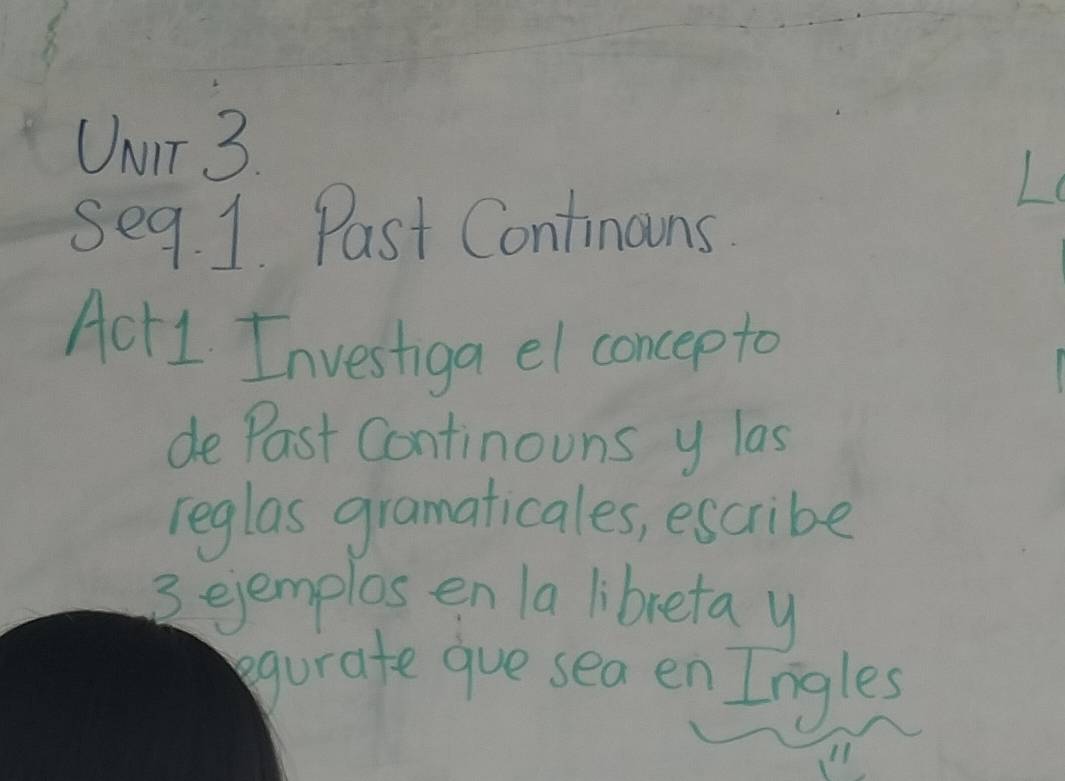 UNIT 3.
Seq. 1. Past Continouns.
Act 1. Investiga el concepto
de Past Continouns y las
reglas gramaticales, escribe
3 ejemplos en la libreta y
egurate que sea en Ingles